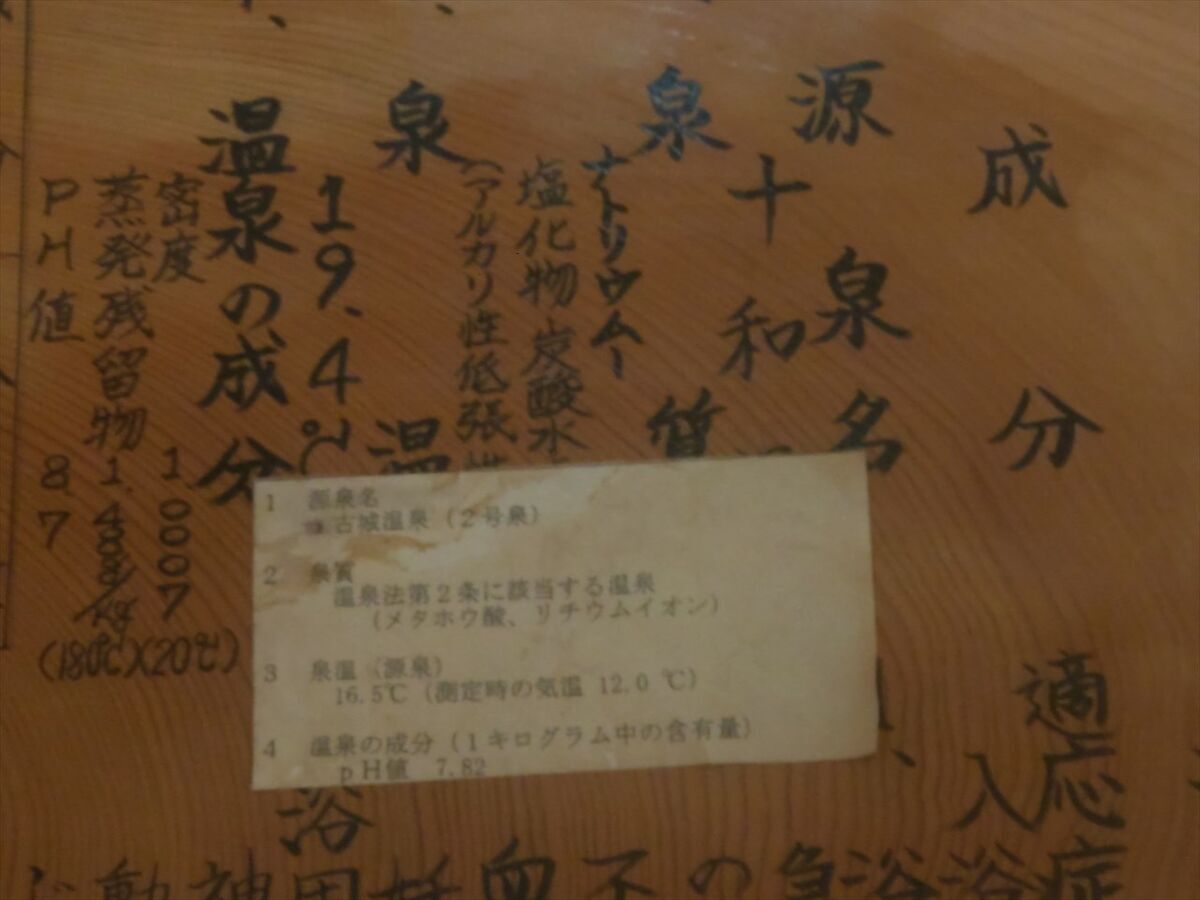 成分
源泉名
十和
泉質
ナトリウムー
塩化物炭酸水
(アルカリ性低張
泉温
19.4℃
温泉の成分
密度 1.0007 (20℃)
蒸発残留物 1.48g/kg (180℃)
PH値 8.7
1 源泉名
古城温泉(2号泉)
2 泉質
温泉法第2条に該当する温泉
(メタホウ酸、リチウムイオン)
3 泉温(源泉)
16.5℃(測定時の気温 12.0 ℃)
4 温泉の成分(1キログラム中の含有量)
pH値 7.82
適応症
入浴
浴